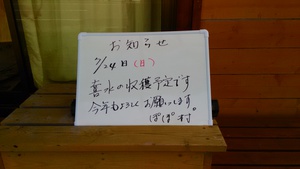 お知らせ
7/24日(日)
喜水の収穫予定です
今年もよろしくお願いします。
ぽぽ村